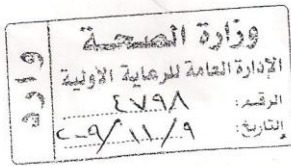 وزارة الصحة
الإدارة العامة للرعاية الأولية
الرقم: ٤٧٩٨
التاريخ: ٩/١١/٢٠٠٩
وارد